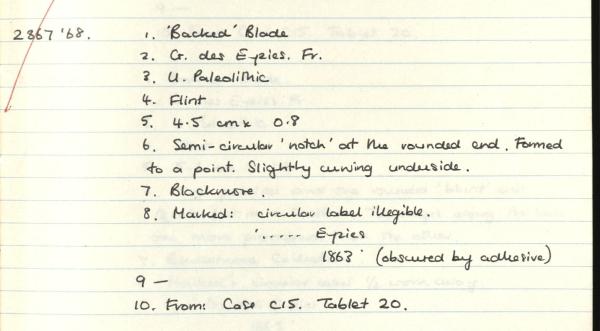 2367 '68. 1. 'Backed' Blade
2. Gr. des Eyzies. Fr.
3. U. Paleolithic
4. Flint
5. 4.5 cm x 0.8
6. Semi-circular 'notch' at the rounded end. Formed
to a point. Slightly curving underside.
7. Blackmore.
8. Marked: circular label illegible.
'..... Eyzies
1863' (obscured by adhesive)
9 —
10. From: Case C15. Tablet 20.